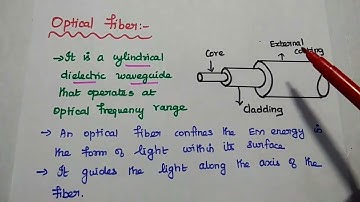 Optical Fiber:-
→ It is a cylindrical
dielectric waveguide
that operates at
optical frequency range
Core
External
Cladding
→ An optical fiber confines the Em energy is
the form of light within its surface
→ It guides the light along the axis of the
fiber.